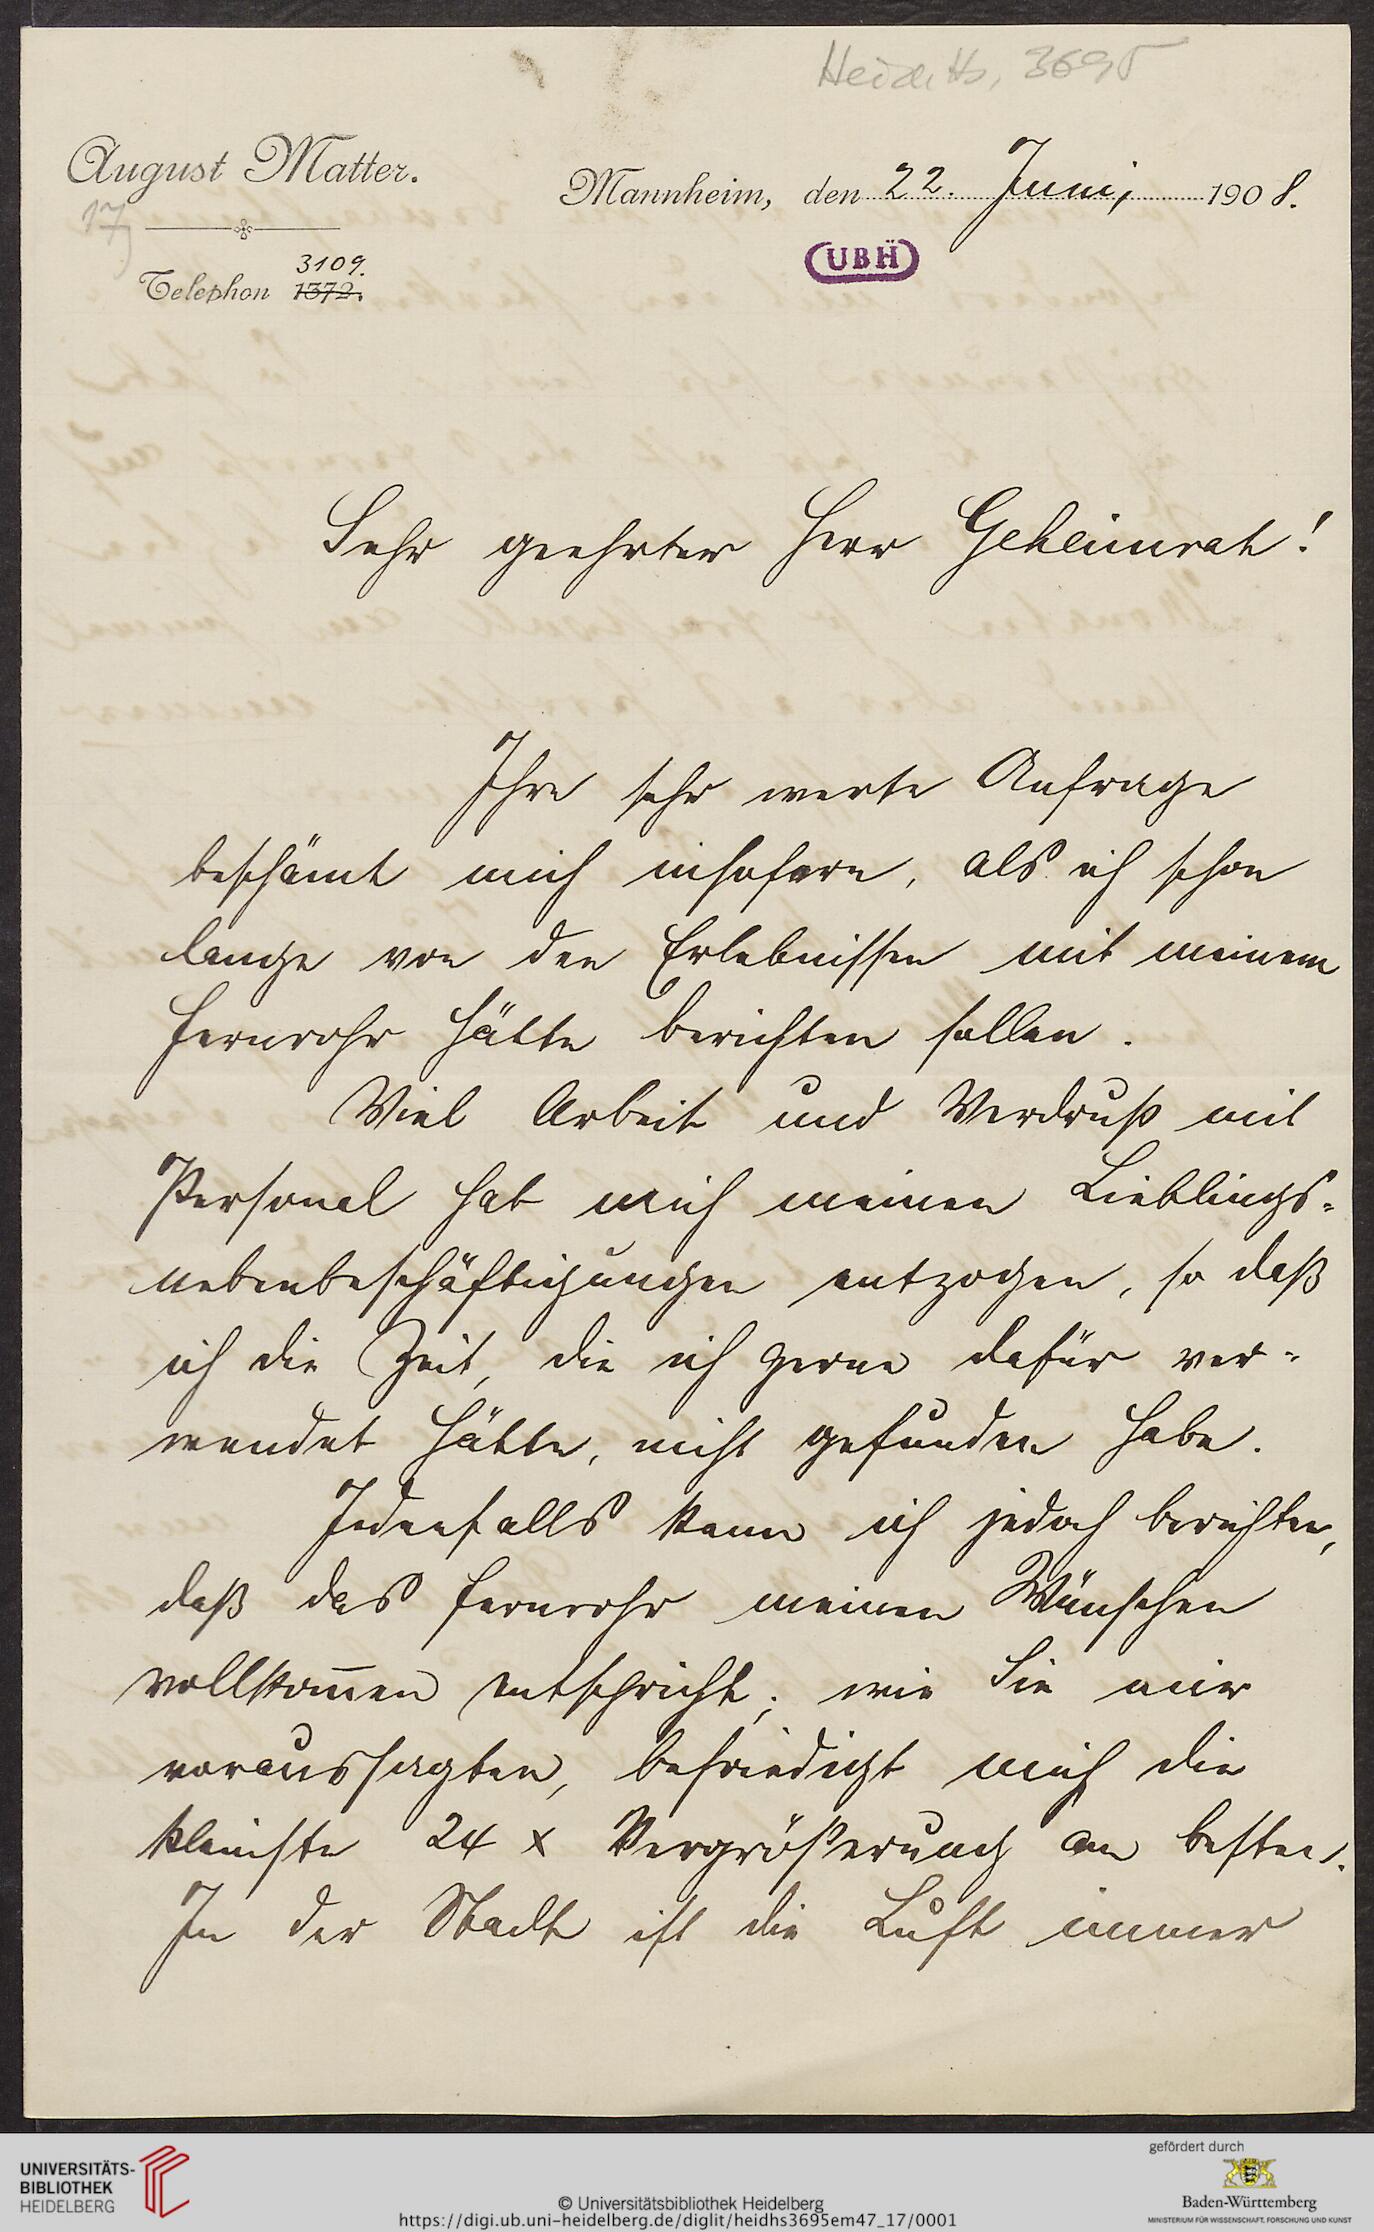 Heid. Hs. 3695
August Matter.
17
Mannheim, den 22. Juni, 1908.
UBH
3109.
Telephon 1372.
Sehr geehrter Herr Geheimrat!
Ihre sehr werte Anfrage
beschämt mich insofern, als ich schon
lange von den Erlebnissen mit meinem
Fernrohr hätte berichten sollen.
Viel Arbeit und Verdruß mit
Personal hat mich meinen Lieblings-
nebenbeschäftigungen entzogen, so daß
ich die Zeit, die ich gerne dafür ver-
wendet hätte, nicht gefunden habe.
Jedenfalls kann ich jedoch berichten,
daß das Fernrohr meinen Wünschen
vollkom̅en entspricht; wie Sie mir
voraussagten, befriedigt mich die
kleinste 24 x Vergrößerung am besten.
In der Stadt ist die Luft immer
UNIVERSITÄTS-
BIBLIOTHEK
HEIDELBERG
© Universitätsbibliothek Heidelberg
https://digi.ub.uni-heidelberg.de/diglit/heidhs3695em47_17/0001
gefördert durch
Baden-Württemberg
MINISTERIUM FÜR WISSENSCHAFT, FORSCHUNG UND KUNST